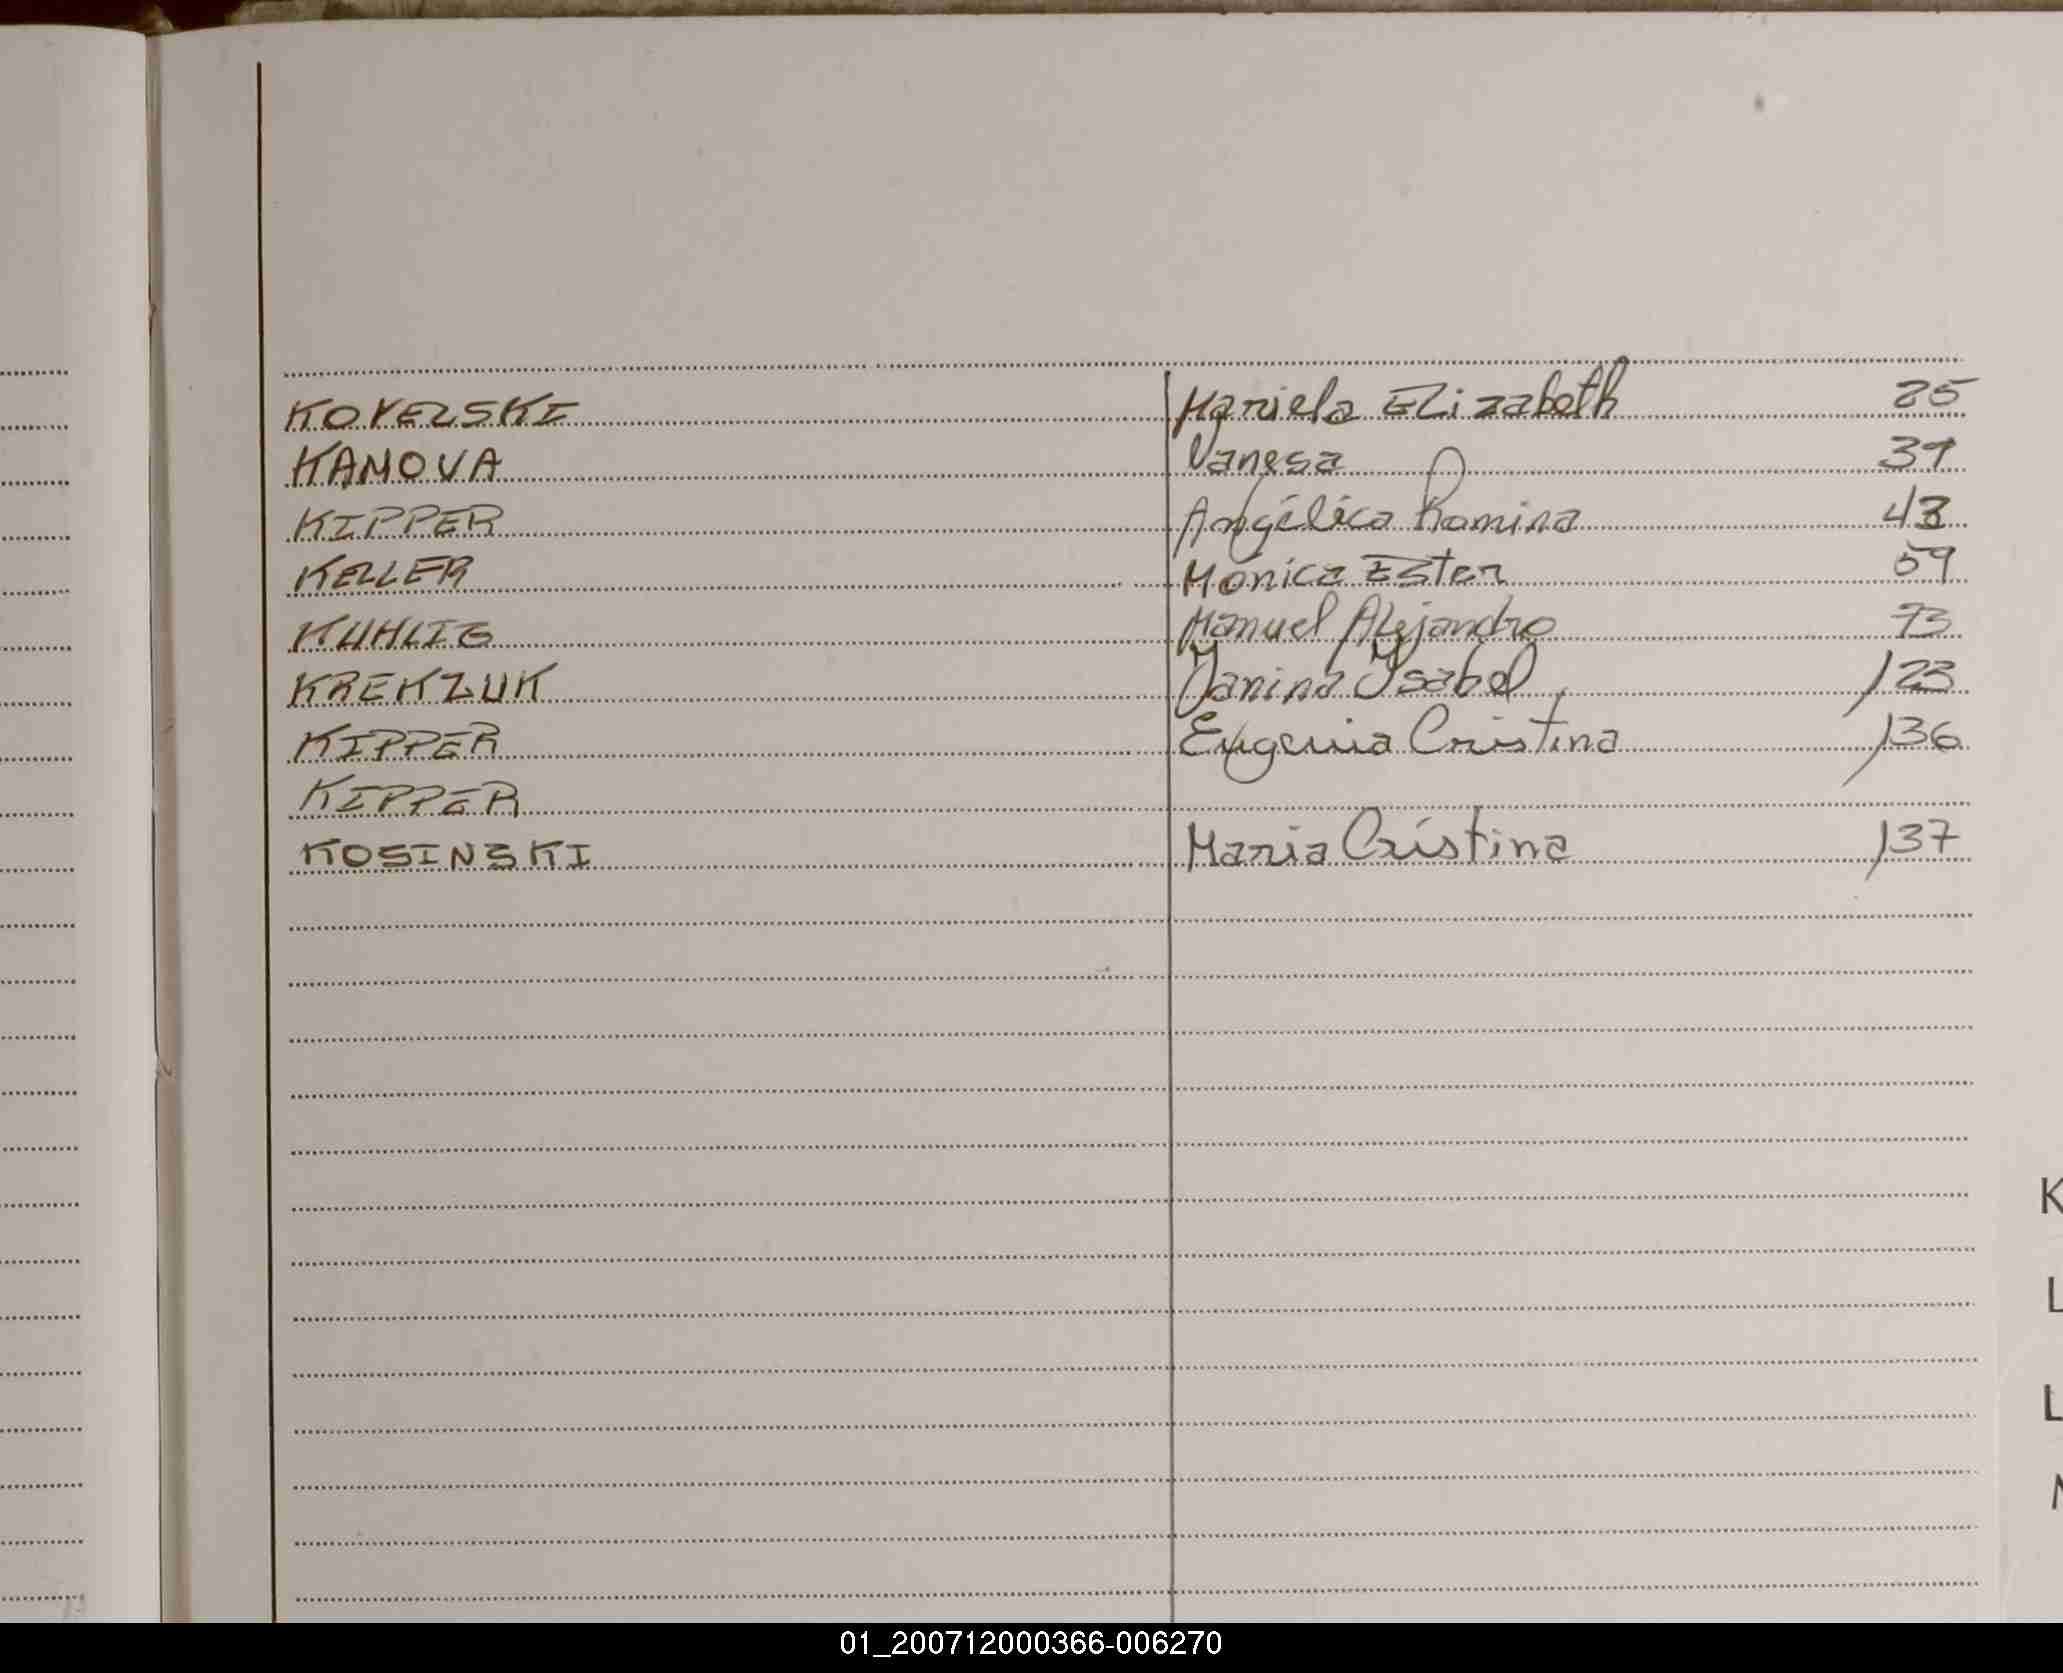 KOVELSKI Mariela Elizabeth 25
KAMOVA Vanesa 39
KIPPER Angélica Romina 43
KELLER Mónica Ester 59
KUHLIG Manuel Alejandro 73
KREKZUK Yanina Ysabel 123
KIPPER Eugenia Cristina 136
KIPPER
KOSINSKI Maria Cristina 137
K
L
L
01_200712000366-006270